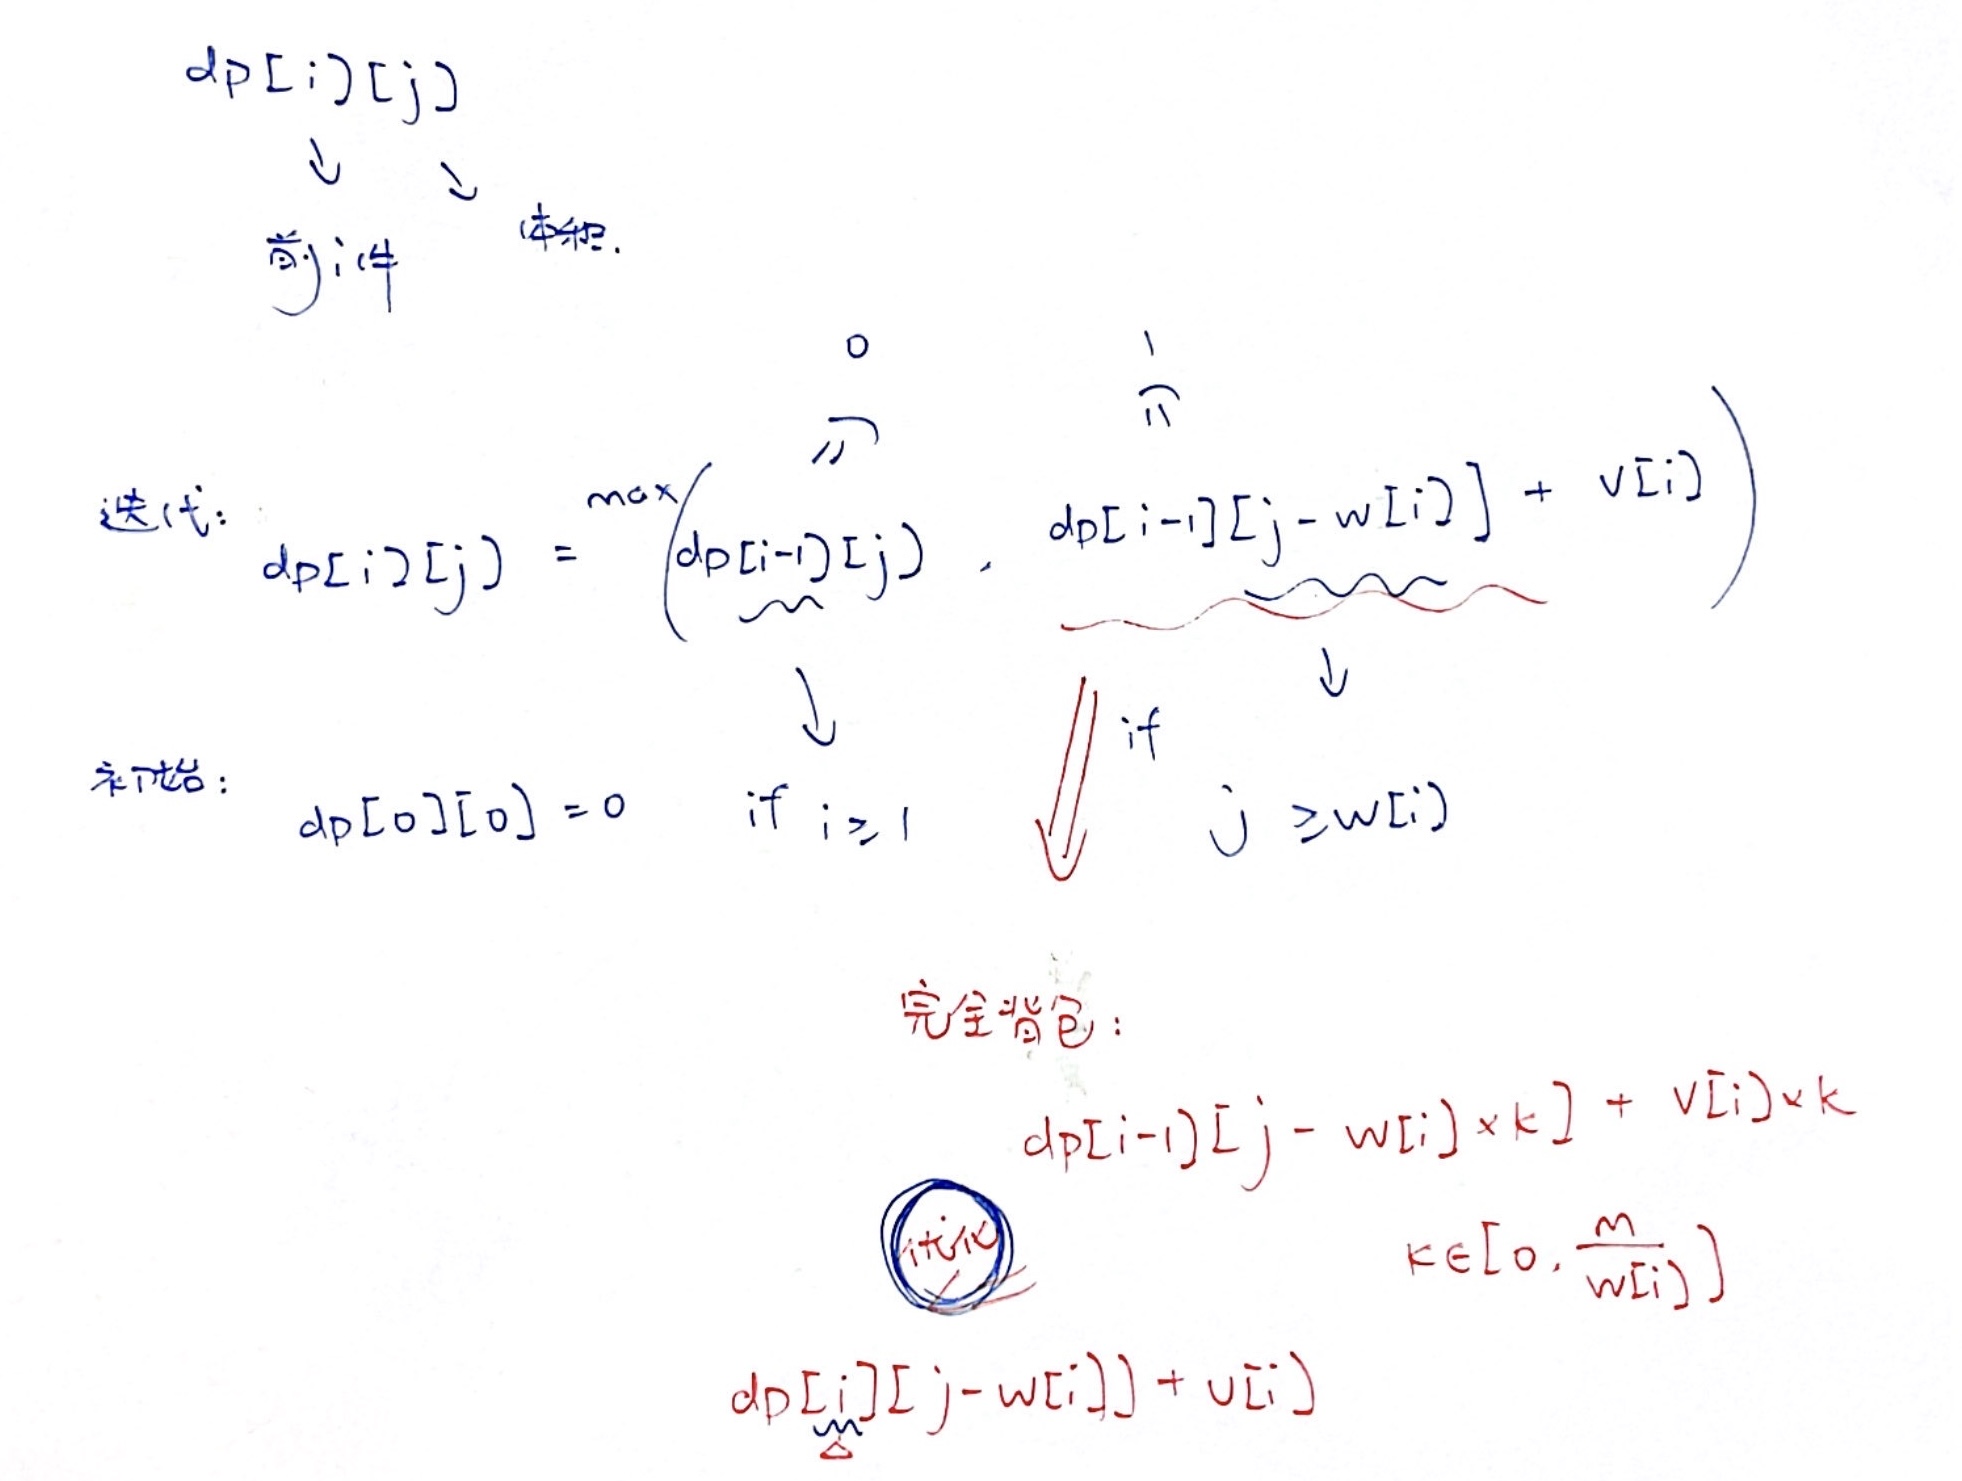 dp[i][j]
↓ ↘
前i件 体积.
0 1
迭代: dp[i][j] = max(dp[i-1][j], dp[i-1][j-w[i]] + v[i])
初始: dp[0][0]=0 if i≥1 if j≥w[i]
完全背包:
dp[i-1][j-w[i]×k] + v[i]×k
优化
k∈[0, m/w[i]]
dp[i][j-w[i]]+v[i]